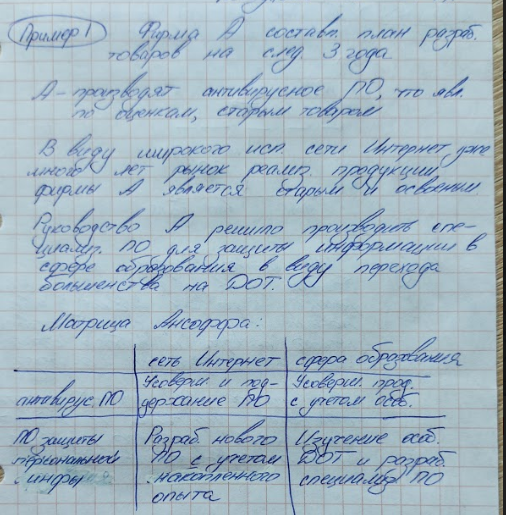 Пример 1 Фирма А составл. план разраб.
товаров на след. 3 года
А - производят антивирусное ПО, что явл.
по оценкам, старым товаром
В виду широкого исп. сети Интернет уже
много лет рынок реализ. продукции
фирмы А является старым и освоенным
Руководство А решило производить спе-
циализ. ПО для защиты информации в
сфере образования в виду перехода
большенства на ДОТ.
Матрица Ансоффа:
сеть Интернет сфера образования
антивирус. ПО Усоверш. и под- Усоверш. прод.
держание ПО с учетом особ.
ПО защиты Разраб. нового Изучение особ.
персональной ПО с учетом ДОТ и разраб.
инфы накопленного специализ ПО
опыта